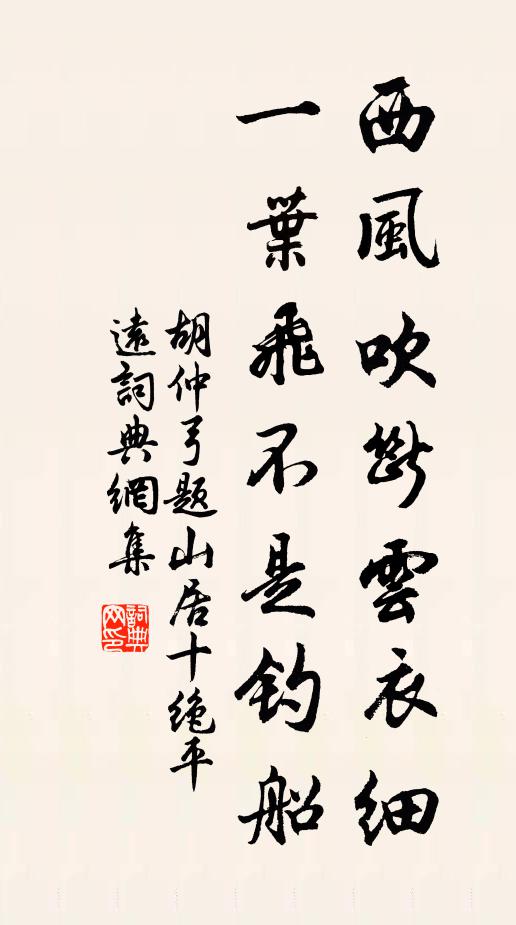 西風吹断雲衣细
一葉飛不是钓船
胡仲弓题山居十绝平
遠詞典網集
詞典网印